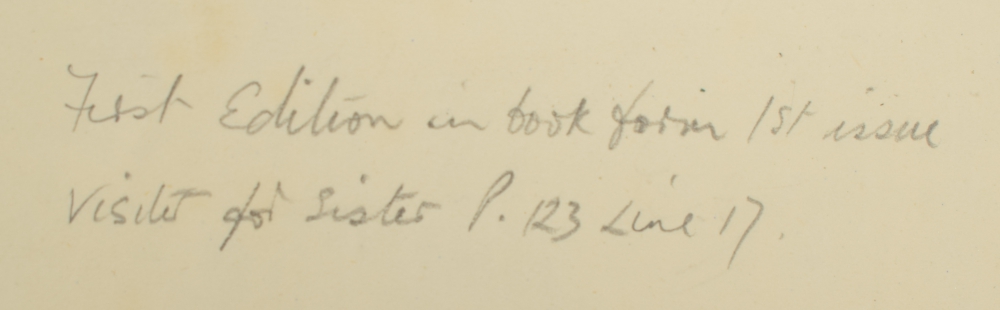 First Edition in book form 1st issue
Visiter for Sister P. 123 Line 17.